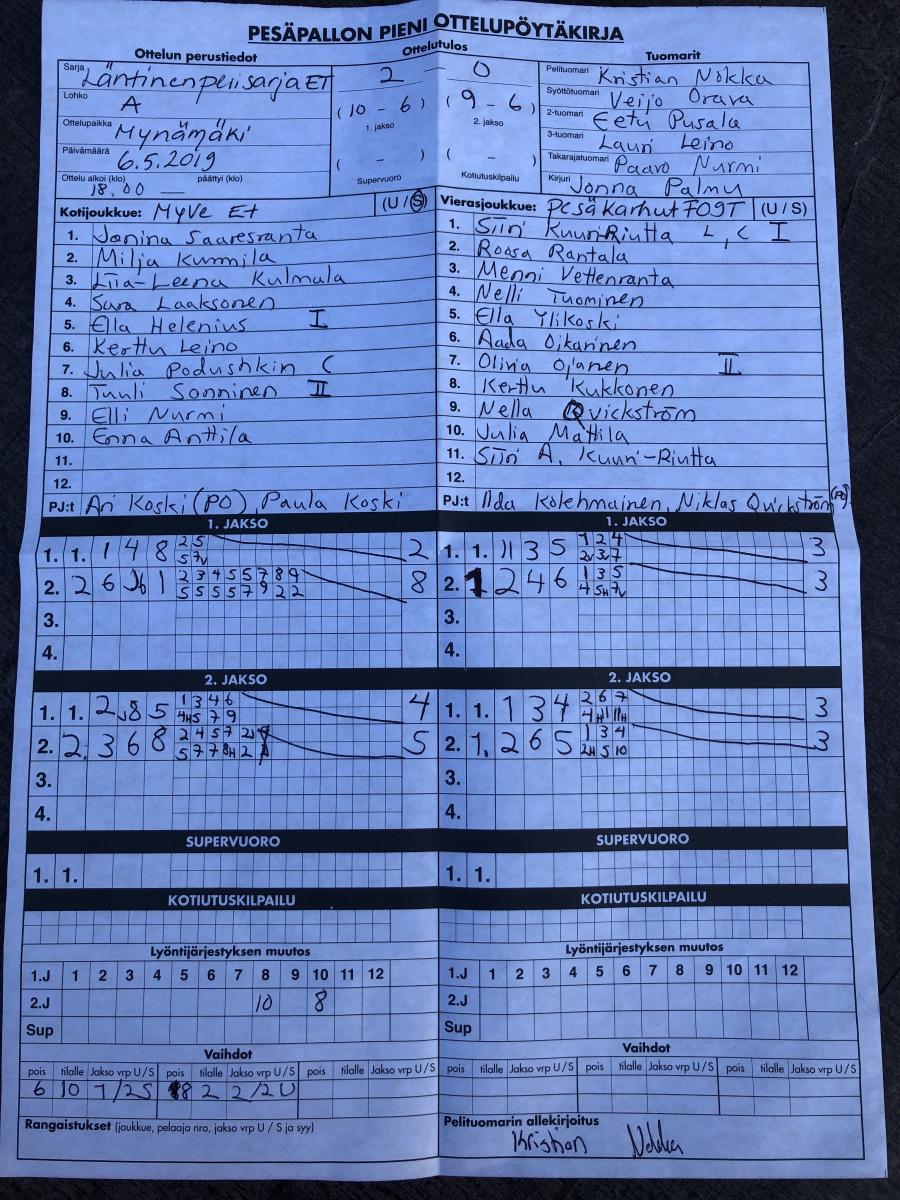 PESÄPALLON PIENI OTTELUPÖYTÄKIRJA
Ottelun perustiedot Ottelutulos Tuomarit
Sarja Läntinenpiirisarja ET
Lohko A
Ottelupaikka Mynämäki
Päivämäärä 6.5.2019
Ottelu alkoi (klo) päättyi (klo)
18.00 —
2 — 0
(10 - 6) (9 - 6)
1. jakso 2. jakso
( - ) ( - )
Supervuoro Kotiutuskilpailu
Pelituomari Kristian Nokka
Syöttötuomari Veijo Orava
2-tuomari Eetu Pusala
3-tuomari Lauri Leino
Takarajatuomari Paavo Nurmi
Kirjuri Jonna Palmu
Kotijoukkue: MyVe Et (U / S)
1. Janina Saaresranta
2. Milja Kummila
3. Liia-Leena Kulmala
4. Sara Laaksonen
5. Ella Helenius I
6. Kerttu Leino
7. Julia Podushkin C
8. Tuuli Sonninen II
9. Elli Nurmi
10. Enna Anttila
11.
12.
PJ:t Ari Koski (PO), Paula Koski
Vierasjoukkue: Pesäkarhut FOST (U / S)
1. Siiri Kuuri-Riutta L, C I
2. Roosa Rantala
3. Menni Vettenranta
4. Nelli Tuominen
5. Ella Ylikoski
6. Aada Oikarinen
7. Olivia Ojanen II
8. Kerttu Kukkonen
9. Nella Quickström
10. Julia Mattila
11. Siiri A. Kuuri-Riutta
12.
PJ:t Ilda Kolehmainen, Niklas Quickström (PO)
1. JAKSO
1. 1. 1 4 8 2 5 2
5 7v
2. 2 6 1 2 3 4 5 5 7 8 9 8
5 5 5 5 7 9 2 2
3.
4.
1. JAKSO
1. 1. 11 3 5 1 2 4 3
2v 3v 7
2. 1 2 4 6 1 3 5 3
4 5H 7v
3.
4.
2. JAKSO
1. 1. 2 8 5 1 3 4 6 4
4H 5 7 9
2. 2. 3 6 8 2 4 5 7 5
5 7 7 8H 2
3.
4.
2. JAKSO
1. 1. 1 3 4 2 6 7 3
4 H1 11H
2. 1. 2 6 5 1 3 4 3
2H 5 10
3.
4.
SUPERVUORO SUPERVUORO
1. 1. 1. 1.
KOTIUTUSKILPAILU KOTIUTUSKILPAILU
Lyöntijärjestyksen muutos
1.J 1 2 3 4 5 6 7 8 9 10 11 12
2.J 10 8
Sup
Lyöntijärjestyksen muutos
1.J 1 2 3 4 5 6 7 8 9 10 11 12
2.J
Sup
Vaihdot
pois tilalle Jakso vrp U/S pois tilalle Jakso vrp U/S pois tilalle Jakso vrp U/S
6 10 1/2S 8 2 2/2U
Vaihdot
pois tilalle Jakso vrp U/S pois tilalle Jakso vrp U/S pois tilalle Jakso vrp U/S
Rangaistukset (joukkue, pelaaja nro, jakso vrp U / S ja syy)
Pelituomarin allekirjoitus
Kristian Nokka